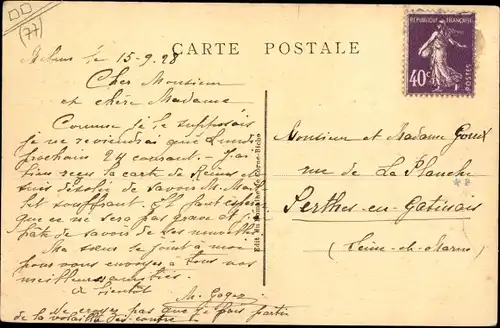 (77)
CARTE POSTALE
REPUBLIQUE FRANÇAISE
40c
POSTES
Melun le 15-9-28
Cher Monsieur
et chère Madame
Comme je le supposais
je ne reviendrai que Lundi
prochain 24 courant. - J'ai
bien reçu la carte de Reims et
suis désolé de savoir M. 
et souffrant. J'espère
que ce ne sera pas grave et j'ai
hâte de savoir de ses nouvelles
Ma sœur se joint à moi
pour vous envoyer à tous nos
meilleures amitiés.
à bientôt
M. Gogez
Ne croyez pas que je fais partie
de la volaille ci-contre
Monsieur et Madame Goux
rue de La Planche
Perthes-en-Gatinais
(Seine-et-Marne)